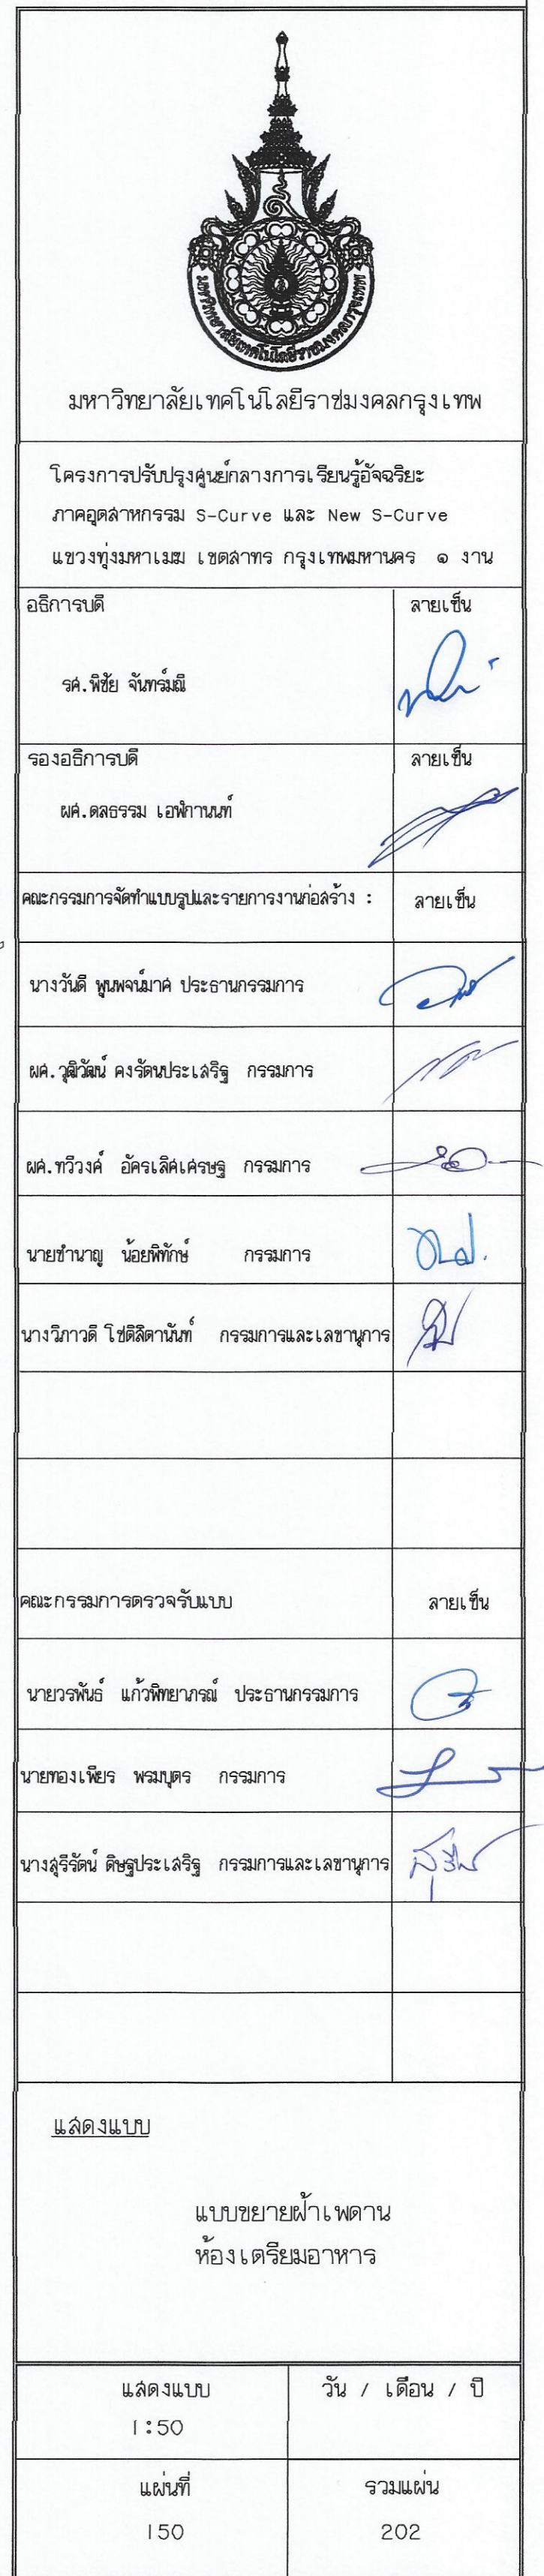 มหาวิทยาลัยเทคโนโลยีราชมงคลกรุงเทพ
มหาวิทยาลัยเทคโนโลยีราชมงคลกรุงเทพ
โครงการปรับปรุงศูนย์กลางการเรียนรู้อัจฉริยะ
ภาคอุตสาหกรรม S-Curve และ New S-Curve
แขวงทุ่งมหาเมฆ เขตสาทร กรุงเทพมหานคร ๑ งาน
อธิการบดี ลายเซ็น
รศ.พิชัย จันทร์มณี
รองอธิการบดี ลายเซ็น
ผศ.ดลธรรม เอฬกานนท์
คณะกรรมการจัดทำแบบรูปและรายการงานก่อสร้าง : ลายเซ็น
นางวันดี พูนพจน์มาศ ประธานกรรมการ
ผศ.วุฒิวัฒน์ คงรัตนประเสริฐ กรรมการ
ผศ.ทวีวงศ์ อัครเลิศเศรษฐ กรรมการ
นายชำนาญ น้อยพิทักษ์ กรรมการ
นางวิภาวดี โชติลิตานันท์ กรรมการและเลขานุการ
คณะกรรมการตรวจรับแบบ ลายเซ็น
นายวรพันธ์ แก้วพิทยาภรณ์ ประธานกรรมการ
นายทองเพียร พรมบุตร กรรมการ
นางสุรีรัตน์ ดิษฐประเสริฐ กรรมการและเลขานุการ
แสดงแบบ
แบบขยายฝ้าเพดาน
ห้องเตรียมอาหาร
แสดงแบบ วัน / เดือน / ปี
1:50
แผ่นที่ รวมแผ่น
150 202